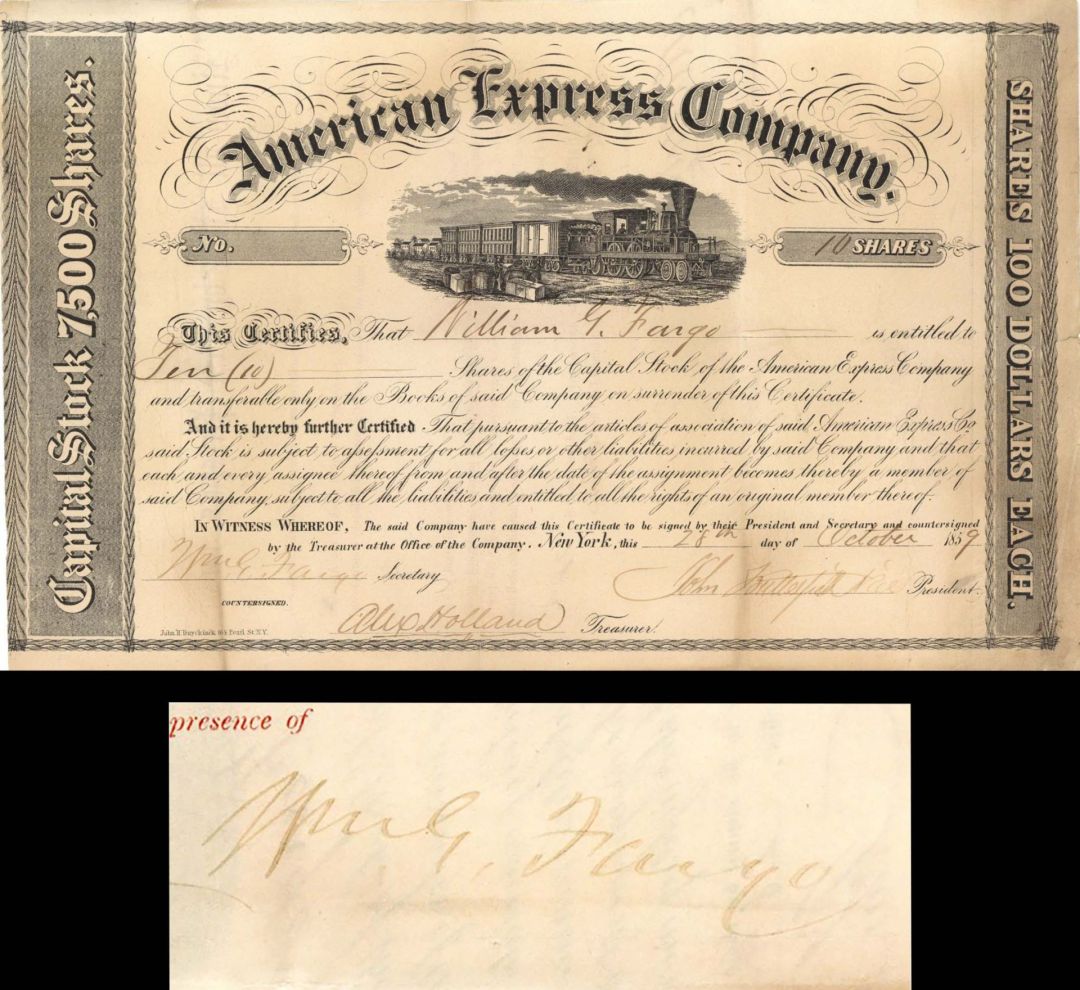 American Express Company.
Capital Stock 7,500 Shares.
SHARES 100 DOLLARS EACH.
No.
10 SHARES
This Certifies, That William G. Fargo is entitled to
Ten (10) Shares of the Capital Stock of the American Express Company
and transferable only on the Books of said Company on surrender of this Certificate.
And it is hereby further Certified That pursuant to the articles of association of said American Express Co
said Stock is subject to assessment for all losses or other liabilities incurred by said Company and that
each and every assignee thereof from and after the date of the assignment becomes thereby a member of
said Company, subject to all the liabilities and entitled to all the rights of an original member thereof.
IN WITNESS WHEREOF, The said Company have caused this Certificate to be signed by their President and Secretary and countersigned
by the Treasurer at the Office of the Company. New York, this 28th day of October 1859
Wm G. Fargo Secretary
John Butterfield President.
COUNTERSIGNED.
Alex Holland Treasurer.
John H Duyckinck 164 Pearl St. N.Y.
presence of
Wm G. Fargo